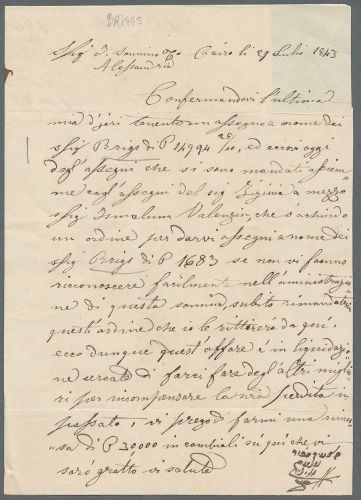 BRIGGS
Sig. J. Sonnino & Co. Cairo li 21 Luglio 1843
Alessandria
Confermandovi l'ultima
mia d'jeri tenente un assegno a nome dei
SSig Brigs di P 14994 25/40, ed ancora oggi
degl'assegni che si sono mandati assie
me cogl'assegni del sig Zizinia a mezzo
SSig Ismalun Valensin, che
un ordine per darvi assegni a nome dei
SSig Brigs di P 1683 se non vi fanno
riconoscere facilmente nell'amministrazio
ne di questa somma, subito rimandatemi
quest'ordine che io le ritirerò da qui.
ecco dunque quest'affare è in liquidazio
ne cercate di farci fare degl'altri miglio
ri per ricompensare la mia perdita in
passato, vi prego di farmi una rimes
sa di P 30000 in cambiali su qui che vi
sarò gratto vi saluto